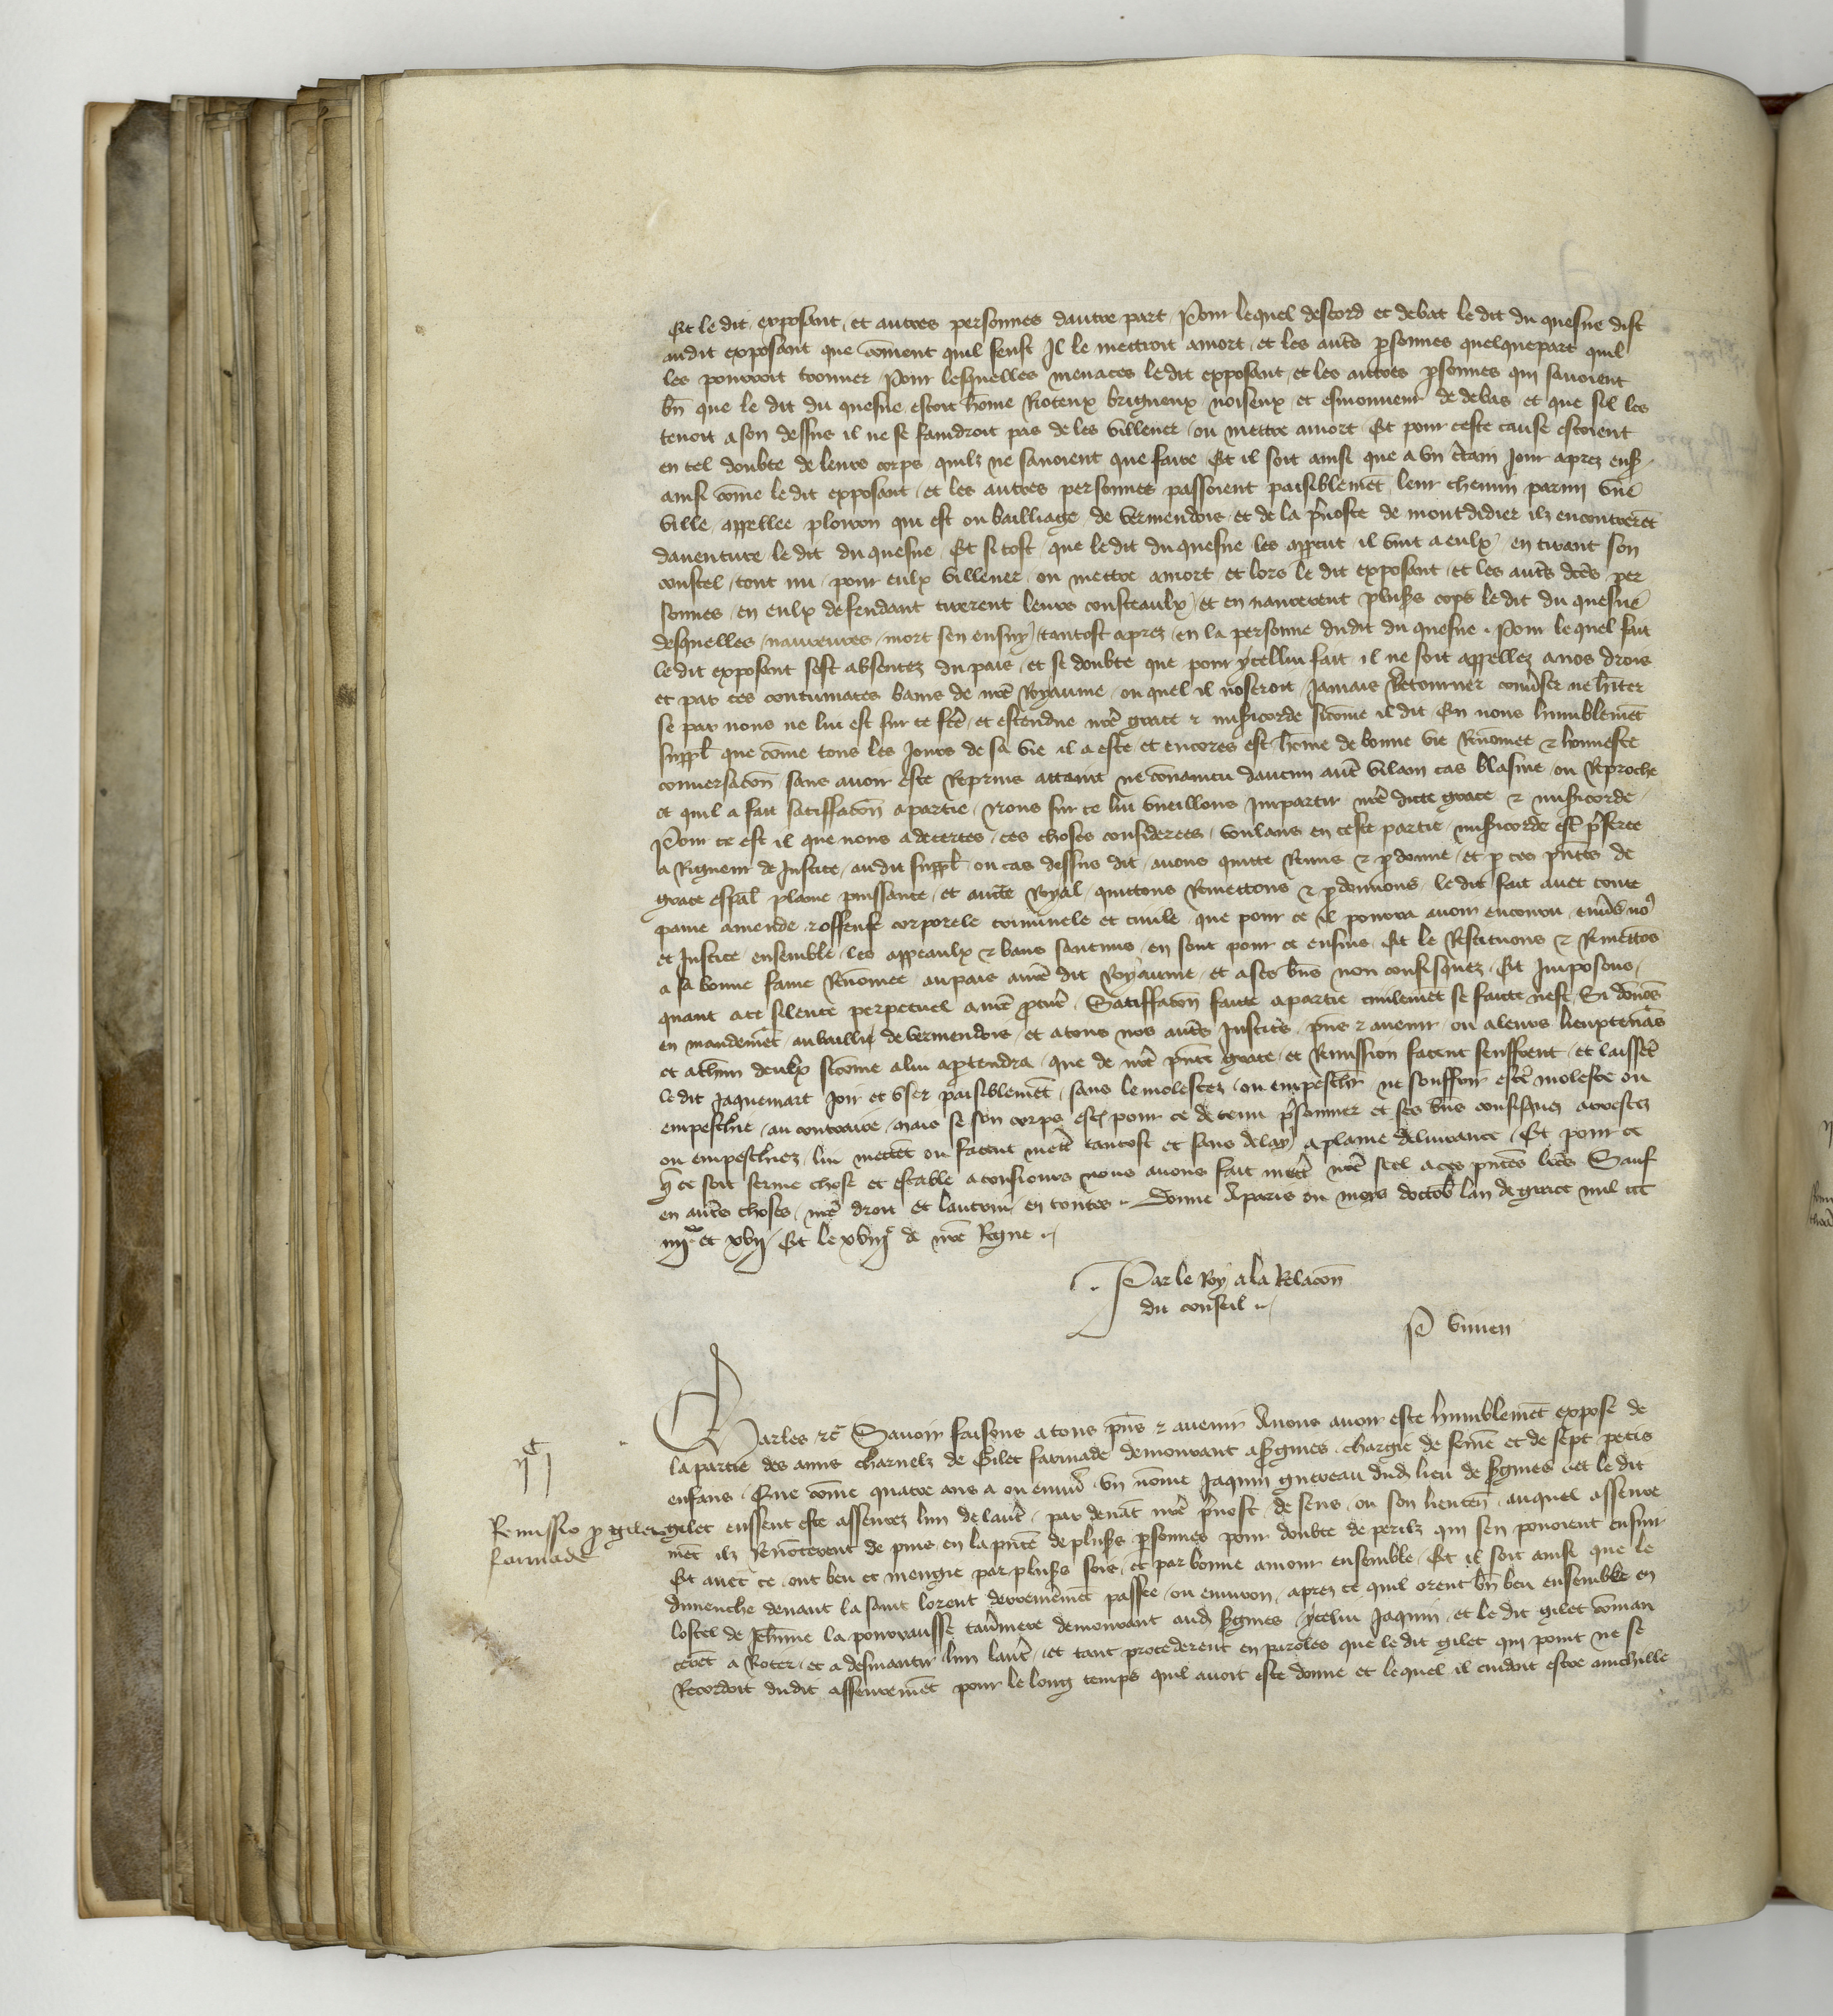 Et le dit exposant et autres personnes dautre part Pour lequel descord et debat le dit du quesne dist
audit exposant que cōment quil feust Il le mettroit amort et les aut̄s p̱sonnes quelquepart quil
les pourroit trouuer Pour lesquelles menaces ledit exposant et les autres p̱sonnes qui sauoient
bn̄ que le dit du quesne estoit hōme Roteux brigueux noiseux et esmouueur de debas et que sil les
tenoit a son dessus il ne se faindroit pas de les villener ou mettre amort Et pour ceste cause estoient
en tel doubte de leurs corps quilz ne sauoient que faire Et il soit ainsi que a vn ċtain Jour aprez ens
ainsi cōme le dit exposant et les autres personnes passoient paisiblemēt leur chemin parmi vne
ville appellee ploiron qui est ou bailliage de vermendois et de la p̄uoste de montdidier ilz encontrerēt
dauenture le dit du quesne Et si tost que le dit du quesne les apperut il vint a eulx en tirant son
coustel tout nu pour eulx villener ou mettre amort et lors le dit exposant et les aut̄s dc̄es per
sonnes en eulx defendant tirerent leurs cousteaulx et en naurerent plus̄s cops le dit du quesne
desquelles naureures mort sen ensuy tantost aprez en la personne dudit du quesne Pour lequel fait
le dit exposant sest absentez du pais et se doubte que pour ycellui fait il ne soit appellez a nos drois
et par ces contumaces banis de nr̄e Royaume ou quel il noseroit Jamais Retourner conūser ne hn̄ter
se par nous ne lui est sur ce fc̄e et estendue nr̄e grace ⁊ mis̄icorde sicōme il dit En nous humblemēt
suppl̄ que cōme tous les Jours de sa vie il a este et encores est hōme de bonne vie Renōmee ⁊ honneste
conuersacōn sans auoir este Reprins attaint ne conuaincu daucun aut̄e vilain cas blasme ou Reproche
et quil a fait satiffacōn a partie Nous sur ce lui vueillons Impartir nr̄e dicte grace ⁊ mis̄icorde
Pour ce est il que nous adecertes ces choses considerees voulans en ceste partie mis̄icorde est̄ p̄feree
a Rigueur de Justice audit suppl̄ ou cas dessus dit auons quitte Remis ⁊ p̱donne et p̱ ces pn̄tes de
grace esp̄al plaine puissance et auct̄e Royal quittons Remettons ⁊ p̱donnons le dit fait auec toute
paine amende ⁊ offense corporele criminele et ciuile que pour ce il pourra auoir encouru enuers no9
et Justice ensemble les appeaulx ⁊ bans saucuns en sont pour ce ensuis Et le Restituons ⁊ Remettōs
a sa bonne fame Renōmee au pais a nr̄e dit Royaume et a ses bn̄s non confisquez Et Imposons
quant a ce silence perpetuel a nr̄e p̱cur̄ Satiffacōn faicte a partie ciuilemēt se faicte nest Si donōs
en mandemēt au bailli de vermendois et a tous nos aut̄s Justic̄s pn̄s ⁊ auenir ou a leurs lieuxtenās
et a ch̄un deulx sicōme a lui ap̱tendra que de nr̄e pn̄te grace et Remission facent seuffrent et laissēt
le dit Jaquemart Joir et vser paisiblemēt sans le molester ou empeschr̄ ne souffrir estr̄ moleste ou
empeschie au contraire mais se son corps est pour ce detenu p̄sonnier et ses bn̄s confisquez arrestez
ou empeschiez lui mettēt ou facent mettr̄ tantost et sans delay a plaine deliurance Et pour ce
q̄ ce soit ferme chose et estable a tousiours nous auons fait mettr̄ nr̄e seel a ces pn̄tes lr̄es Sauf
en aut̄s choses nr̄e droit et lautrui en toutes Donne A paris ou mois doctobr̄ lan de grace mil ccc
iiij xx et xvij Et le xviij e de nr̄e Regne
Par le Roy a la Relacōn
du conseil
P vimen
ij c j
Charles ⁊c̄ Sauoir faisons a tous pn̄s ⁊ auenir A nous auoir este humblemēt expose de
la partie des amis charnelz de Gilet farmade demourant a S̱gines chargie de fem̄e et de sept petis
enfans Que cōme quatre ans a ou enuir̄ vn nōme Jaquin guereau dud̄ lieu de S̱gines et le dit
Remissio p̱ gileto
farmade
gilet eussent este asseurez lun de laut̄r par deuāt nr̄e p̄uost de sens ou son lieuten̄ auquel asseure
mēt ilz Renōcerent depuis en la pn̄ce de plus̄s p̱sonnes pour doubte de perilz qui sen pouoient ensuir
Et auec ce ont beu et mengie par plus̄s fois et par bonne amour ensemble Et il soit ainsi que le
dimenche deuant la saint lorent derreniēmēt passee ou enuiron aprez ce quil orent bn̄ beu ensemble en
lostel de Jehn̄ne la pourrausse tau̇niere demourant aud̄ S̱gines ycelui Jaquin et le dit gilet cōman
cerēt a Roter et a desmantir lun laut̄r et tant procederent en paroles que le dit gilet qui point ne se
Recordoit dudit asseuremēt pour le long temps quil auoit este donne et lequel il cuidoit estre anichille